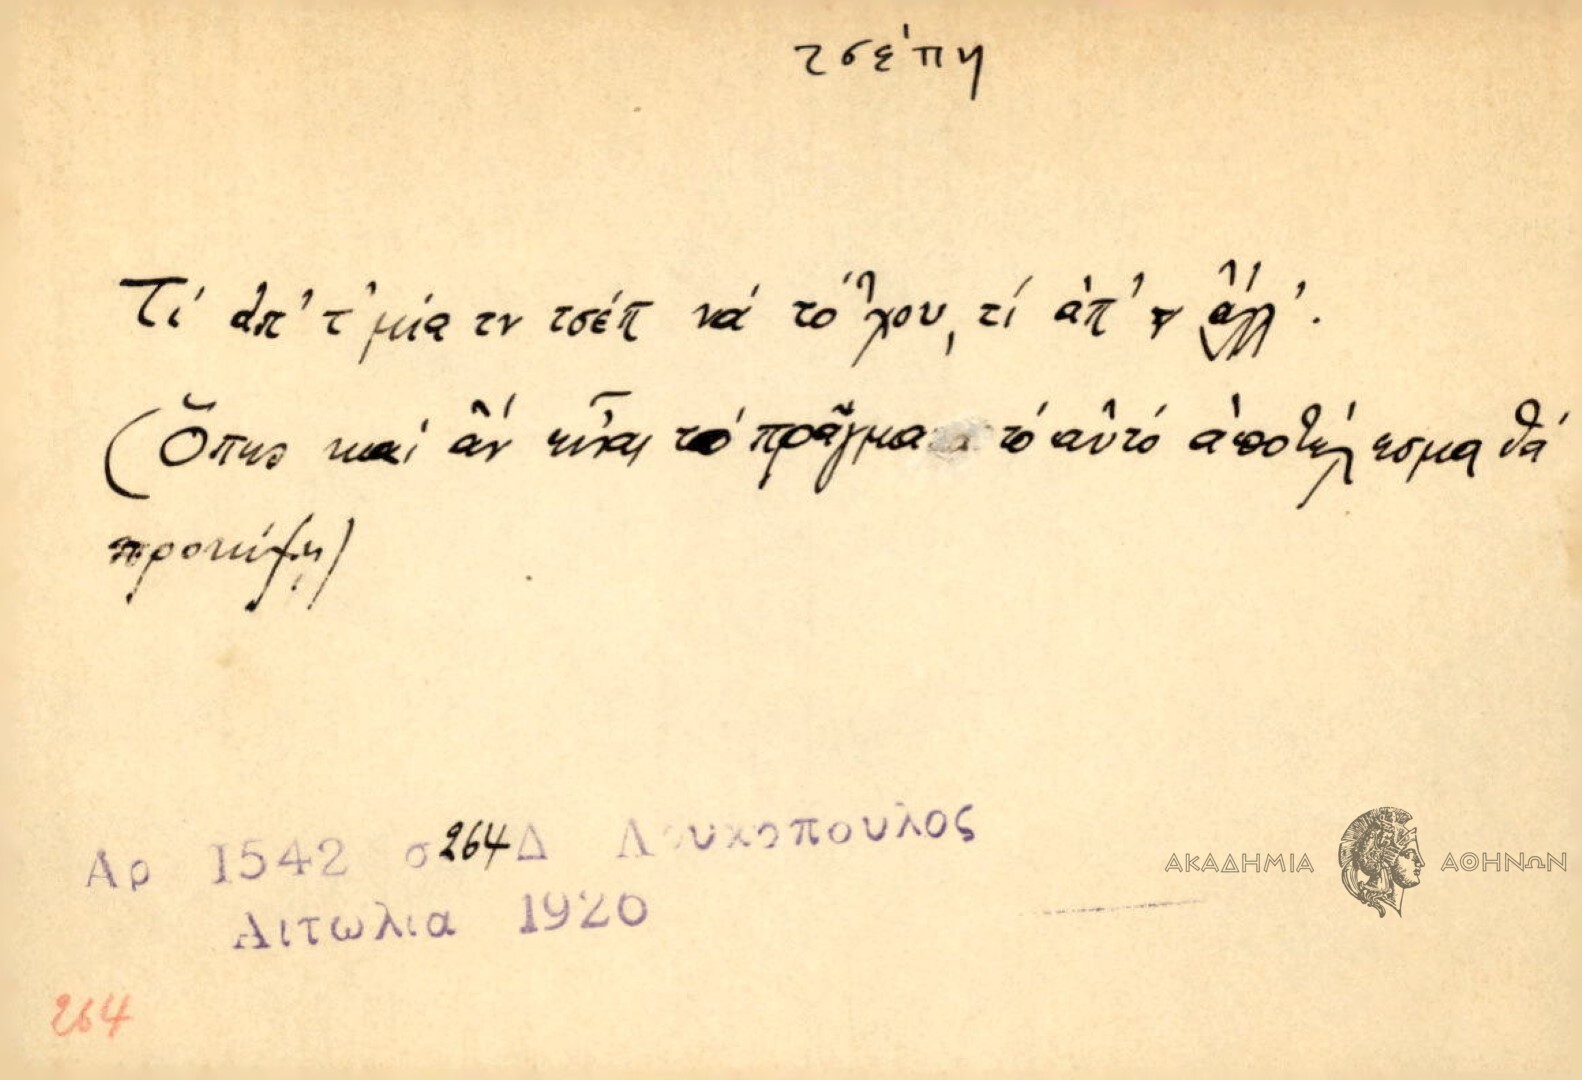 τσέπη
Τί ἀπ' τ' μία τν τσέπ νά τό 'χου, τί ἀπ' ν ἄλλ'.
(Ὅπως καί ἄν εἶναι τό πρᾶγμα τό αὐτό ἀποτέλεσμα θά
προκύψῃ)
Αρ 1542 σ 264 Δ Λουκοπουλος
Αιτωλια 1920
ΑΚΑΔΗΜΙΑ ΑΘΗΝΩΝ
264